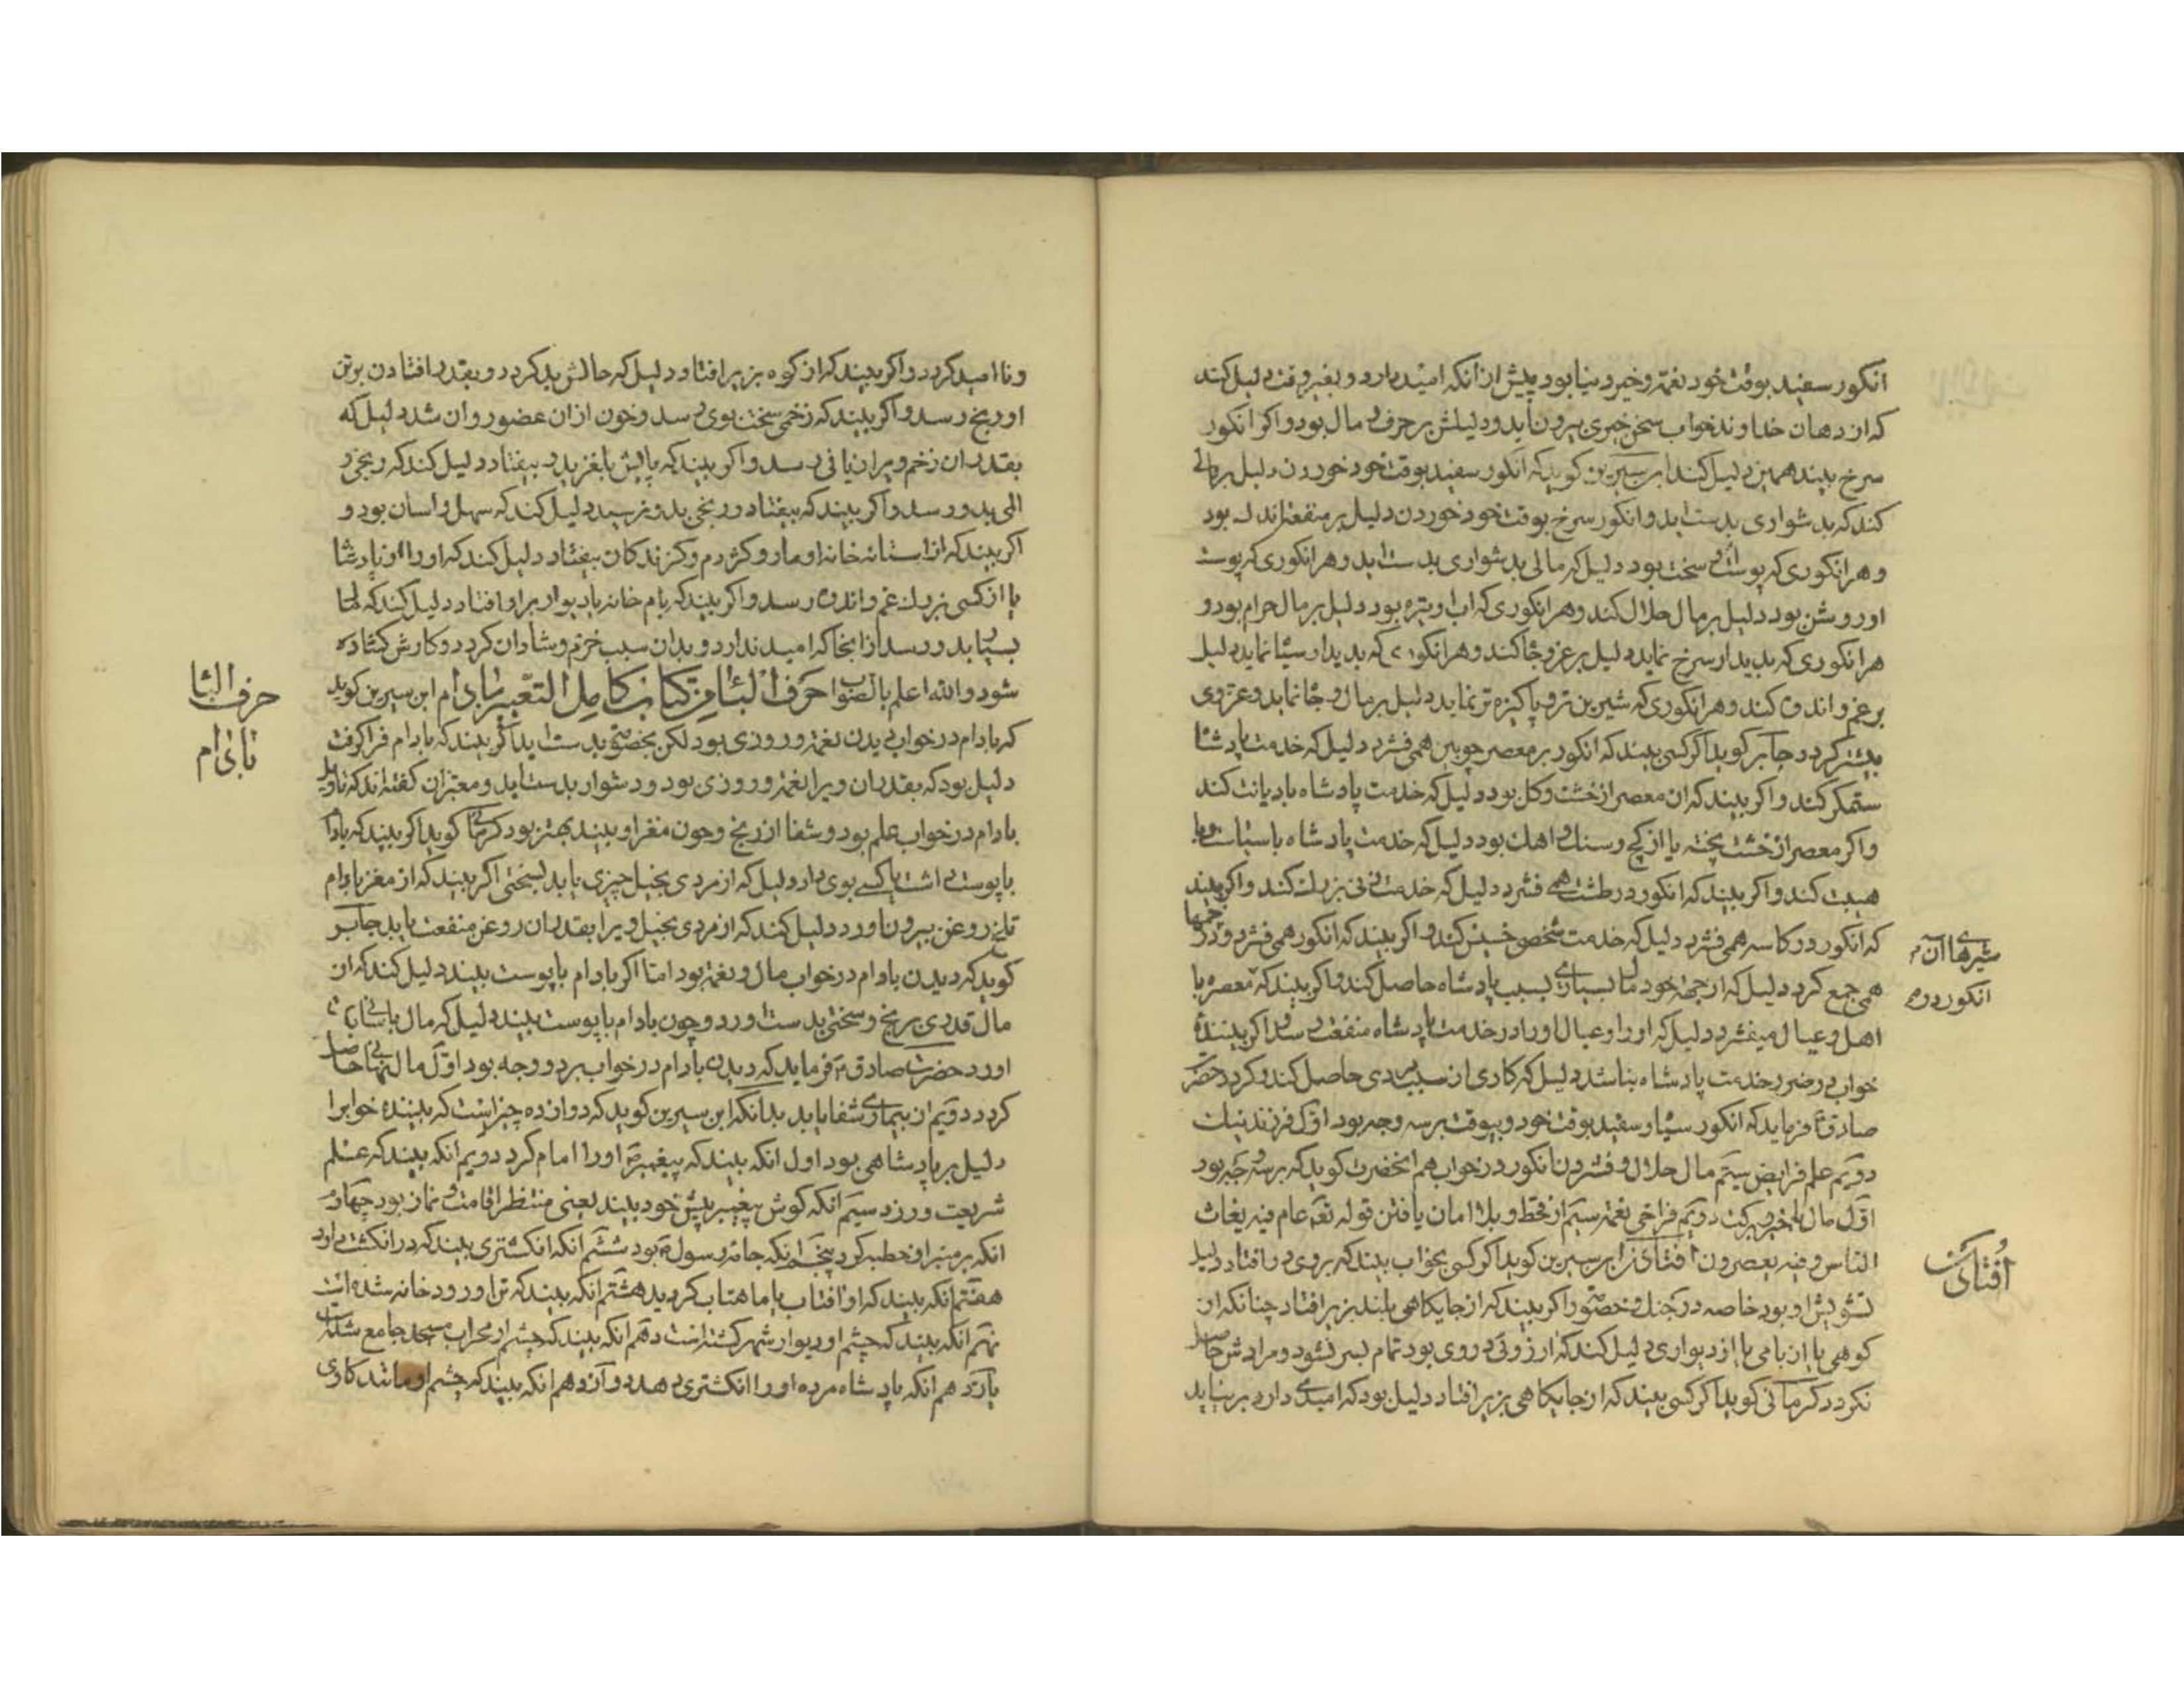 انکور سفید بوقت خود نعمة و خیر دنیا بود پیش از انکه امید دارد و بغیر وقت دلیل کند
که از دهان خداوند خواب سخن خیری بیرون نیاید و دلیلش بر حرف و مال بود و اکر انکور
سرخ بیند همین دلیل کند ابن سیرین کوید که انکور سفید بوقت خود خوردن دلیل بر مالی
کند که بدشواری بدست اید و انکور سرخ بوقت خود خوردن دلیل بر منفعة اندک بود
و هر انکوری که پوست او سخت بود دلیل که مالی بدشواری بدست اید و هر انکوری که پوست
او روشن بود دلیل بر مال حلال کند و هر انکوری که اب او تیره بود دلیل بر مال حرام بود و
هر انکوری که بدیدار سرخ نماید دلیل بر عز و جا کند و هر انکوری که بدیدار سیا نماید دلیل
بر غم و اندوه کند و هر انکوری که شیرین تر و پاکیزه تر نماید دلیل بر مال و جا نماید و عز وی
بیشتر کردد جابر کوید اکر کسی بیند که انکور بر معصر چوبین همی فشرد دلیل که خدمت پادشا
ستمکر کند و اکر بیند که ان معصر از خشت و کل بود دلیل که خدمت پادشاه با دیانت کند
و اکر معصر از خشت پخته یا از کچ و سنک و اهک بود دلیل که خدمت پادشاه با سیاست و با
هیبت کند و اکر بیند که انکور در طشت همی فشرد دلیل که خدمت زنی بزرک کند و اکر بیند
که انکور در کاسه همی فشرد دلیل که خدمت شخص خسیس کند و اکر بیند که انکور همی فشرد و در خمها
همی جمع کرد دلیل که از جهة خود مال بسیاری بسبب پادشاه حاصل کند و اکر بیند که معصره با
اهل و عیال میفشرد دلیل که او را و عیال او را در خدمت پادشاه منفعت رسد و اکر بیننده
خواب در خور خدمت پادشاه نباشد دلیل که کاری از سبب مردی حاصل کند و کرد حضرت
صادق ع فرماید که انکور سیا و سفید بوقت خود و بیوقت بر سه وجه بود اول فرزند نیک
دویم علم فرایض سیم مال حلال و فشردن انکور در خواب هم انحضرت کوید که بر سه وجه بود
اول مال با خیر و برکت دویم فراخی نعمة سیم از قحط و بلا امان یافتن قوله تع عام فیه یغاث
الناس و فیه یعصرون افتادن ابن سیرین کوید اکر کسی بخواب بیند که بروی در افتاد دلیل
تشویش او بود خاصه در جنک و خصومت و اکر بیند که از جایکاهی بلند بزیر افتاد چنانکه از
کوهی یا از بامی یا از دیواری دلیل کند که ارزوئی که دروی بود تمام بسر نشود و مرادش حاصل
نکردد کرمانی کوید اکر کسی بیند که از جایکاهی بزیر افتاد دلیل بود که امیدی دارد بر نیاید
شیرهاء آن
انکور دره
افتادن
و نا امید کردد و اکر بیند که از کوه بزیر افتاد دلیل که حالش بد کردد و بقدر افتادن بر تن
او رنج رسد و اکر بیند که زخمی سخت بوی رسد و خون از ان عضو روان شد دلیل که
بقدر ان زخم ویرا زیانی رسد و اکر بیند که پایش بلغزید و بیفتاد دلیل کند که رنجی و
المی بدو رسد و اکر بیند که بیفتاد و رنجی بدو نرسید دلیل کند که سهل و اسان بود و
اکر بیند که از استانه خانه او مار و کژدم و کزندکان بیفتاد دلیل کند که او را از پادشا
یا از کسی بزرک غم و اندوه رسد و اکر بیند که بام خانه یا دیوار بر او افتاد دلیل کند که مال
بسیار بدو رسد از انجا که امید ندارد و بدان سبب خرم و شادان کردد و کارش کشاده
شود و الله اعلم بالصواب حرف البا من کتاب کامل التعبیر بادام ابن سیرین کوید
که بادام در خواب دیدن نعمة و روزی بود لکن بخصومت بدست اید اکر بیند که بادام فرا کرفت
دلیل بود که بقدر ان ویرا نعمة و روزی بود و دشوار بدست اید و معبران کفته اند که تاویل
بادام در خواب علم بود و شفا از رنج و چون مغز او بیند بهتر بود کرمانی کوید اکر بیند که بادام
با پوست داشت یا کسی بوی داد دلیل که از مردی بخیل چیزی یابد بسختی اکر بیند که از مغز بادام
تلخ روغن بیرون اورد دلیل کند که از مردی بخیل ویرا بقدر ان روغن منفعت یابد جابر
کوید که دیدن بادام در خواب مال و نعمة بود اما اکر بادام با پوست بیند دلیل کند که از
مال قدری برنج و سختی بدست اورد و چون بادام با پوست بیند دلیل که مال باسانی بدست
اورد حضرت صادق ع فرماید که دیدن بادام در خواب بر دو وجه بود اول مال پنهانی حاصل
کردد دویم از بیماری شفا یابد بدانکه ابن سیرین کوید که دوازده چیز است که بیننده خوابرا
دلیل بر پادشاهی بود اول انکه بیند که پیغمبر ع او را امام کرد دویم انکه بیند که علم
شریعت ورزد سیم انکه کوش پیغمبر پیش خود بیند یعنی منتظر اقامت و نماز بود چهارم
انکه بر منبر او خطبه کرد پنجم انکه جامه رسول ع بود ششم انکه انکشتری بیند که در انکشت دارد
هفتم انکه بیند که او افتاب یا ماهتاب کردید هشتم انکه بیند که تن او رود خانه شده است
نهم انکه بیند که چشم او دیوار شهر کشته است دهم انکه بیند که چشم او محراب مسجد جامع شده است
یازدهم انکه پادشاه مرده او را انکشتری دهد دوازدهم انکه بیند که چشم او مانند کاوی
حرف البا
بادام